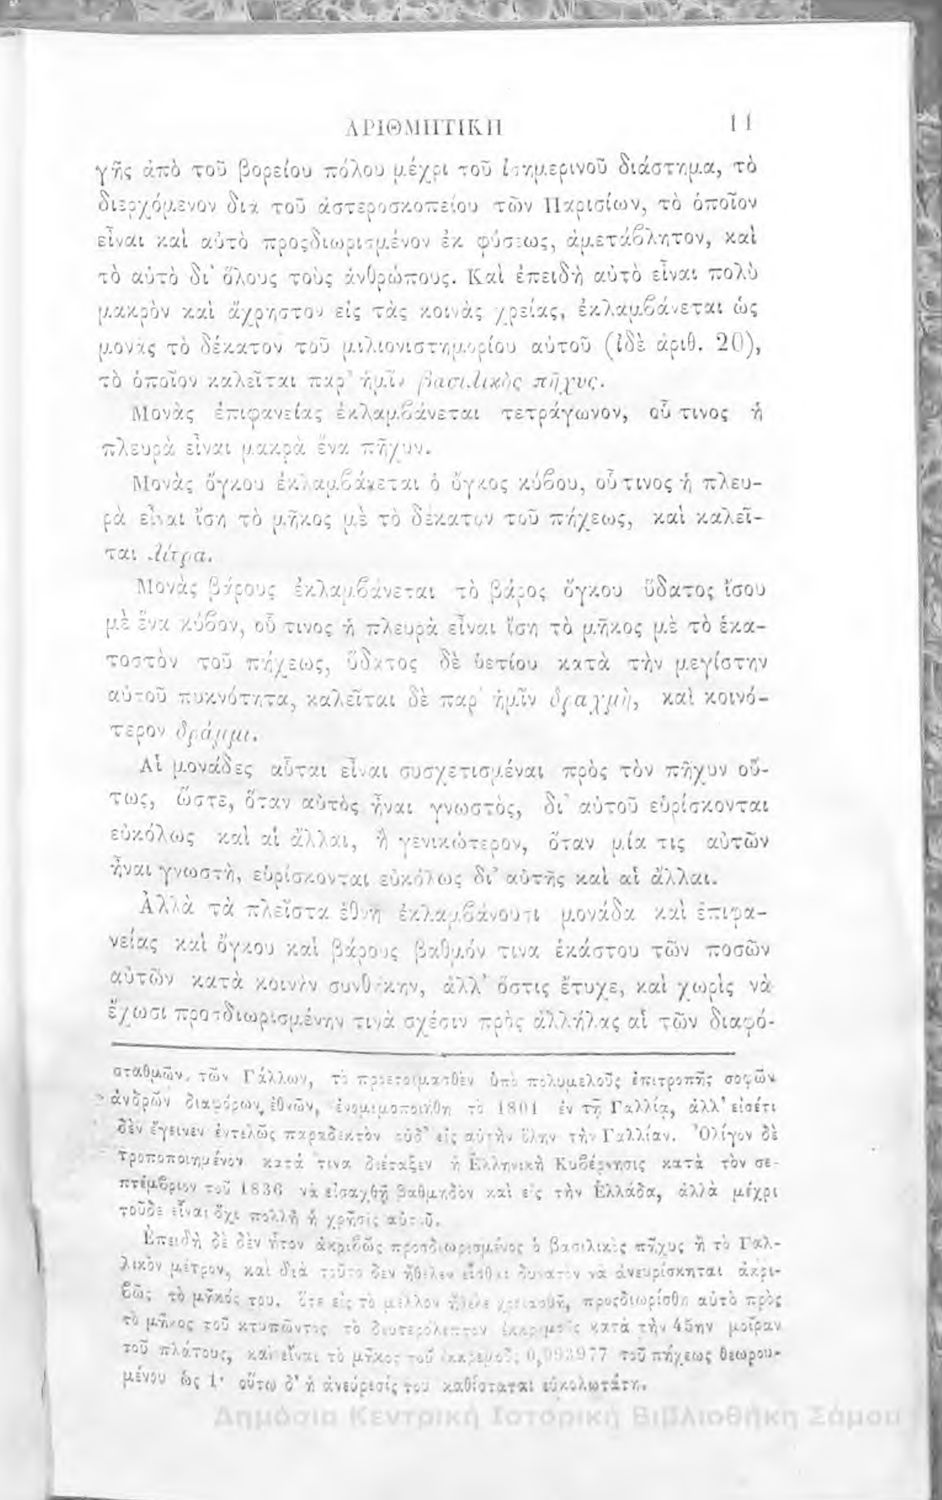 ΑΡΙΘΜΗΤΙΚΗ 11
γῆς ἀπὸ τοῦ βορείου πόλου μέχρι τοῦ ἰσημερινοῦ διάστημα, τὸ
διερχόμενον διὰ τοῦ ἀστεροσκοπείου τῶν Παρισίων, τὸ ὁποῖον
εἶναι καὶ αὐτὸ προςδιωρισμένον ἐκ φύσεως, ἀμετάβλητον, καὶ
τὸ αὐτὸ δι' ὅλους τοὺς ἀνθρώπους. Καὶ ἐπειδὴ αὐτὸ εἶναι πολὺ
μακρὸν καὶ ἄχρηστον εἰς τὰς κοινὰς χρείας, ἐκλαμβάνεται ὡς
μονὰς τὸ δέκατον τοῦ μιλιονιστημορίου αὐτοῦ (ἰδὲ ἀριθ. 20),
τὸ ὁποῖον καλεῖται παρ' ἡμῖν βασιλικὸς πῆχυς.
Μονὰς ἐπιφανείας ἐκλαμβάνεται τετράγωνον, οὗ τινος ἡ
πλευρὰ εἶναι μακρὰ ἕνα πῆχυν.
Μονὰς ὄγκου ἐκλαμβάνεται ὁ ὄγκος κύβου, οὗτινος ἡ πλευ-
ρὰ εἶναι ἴση τὸ μῆκος μὲ τὸ δέκατον τοῦ πήχεως, καὶ καλεῖ-
ται λίτρα.
Μονὰς βάρους ἐκλαμβάνεται τὸ βάρος ὄγκου ὕδατος ἴσου
μὲ ἕνα κύβον, οὗ τινος ἡ πλευρὰ εἶναι ἴση τὸ μῆκος μὲ τὸ ἑκα-
τοστὸν τοῦ πήχεως, ὕδατος δὲ ὑετίου κατὰ τὴν μεγίστην
αὐτοῦ πυκνότητα, καλεῖται δὲ παρ' ἡμῖν δραχμὴ, καὶ κοινό-
τερον δράμμι.
Αἱ μονάδες αὗται εἶναι συσχετισμέναι πρὸς τὸν πῆχυν οὕ-
τως, ὥστε, ὅταν αὐτὸς ἦναι γνωστὸς, δι' αὐτοῦ εὑρίσκονται
εὐκόλως καὶ αἱ ἄλλαι, ἢ γενικώτερον, ὅταν μία τις αὐτῶν
ἦναι γνωστὴ, εὑρίσκονται εὐκόλως δι' αὐτῆς καὶ αἱ ἄλλαι.
Ἀλλὰ τὰ πλεῖστα ἔθνη ἐκλαμβάνουσι μονάδα καὶ ἐπιφα-
νείας καὶ ὄγκου καὶ βάρους βαθμόν τινα ἑκάστου τῶν ποσῶν
αὐτῶν κατὰ κοινὴν συνθήκην, ἀλλ' ὅστις ἔτυχε, καὶ χωρὶς νὰ
ἔχωσι προσδιωρισμένην τινὰ σχέσιν πρὸς ἀλλήλας αἱ τῶν διαφό-
σταθμῶν, τῶν Γάλλων, τὸ προετοιμασθὲν ὑπὸ πολυμελοῦς ἐπιτροπῆς σοφῶν
ἀνδρῶν διαφόρων ἐθνῶν, ἐνομιμοποιήθη τὸ 1801 ἐν τῇ Γαλλίᾳ, ἀλλ' εἰσέτι
δὲν ἔγεινεν ἐντελῶς παραδεκτὸν οὐδ' εἰς αὐτὴν ὅλην τὴν Γαλλίαν. Ὀλίγον δὲ
τροποποιημένον κατά τινα διέταξεν ἡ Ἑλληνικὴ Κυβέρνησις κατὰ τὸν σε-
πτέμβριον τοῦ 1836 νὰ εἰσαχθῇ βαθμηδὸν καὶ εἰς τὴν Ἑλλάδα, ἀλλὰ μέχρι
τοῦδε εἶναι ὄχι πολλὴ ἡ χρῆσις αὐτοῦ.
Ἐπειδὴ δὲ δὲν ἦτον ἀκριβῶς προσδιωρισμένος ὁ βασιλικὸς πῆχυς ἢ τὸ Γαλ-
λικὸν μέτρον, καὶ διὰ τοῦτο δεν ἤθελεν εἶσθαι δυνατὸν νὰ ἀνευρίσκηται ἀκρι-
βῶς τὸ μῆκός του, ὅτε εἰς τὸ μέλλον ἤθελε χρειασθῆ, προςδιωρίσθη αὐτὸ πρὸς
τὸ μῆκος τοῦ κτυπῶντος τὸ δευτερόλεπτον ἐκκρεμοῦς κατὰ τὴν 45ην μοῖραν
τοῦ πλάτους, καὶ εἶναι τὸ μῆκος τοῦ ἐκκρεμοῦς 0,993977 τοῦ πήχεως θεωρου-
μένου ὡς 1· οὕτω δ' ἡ ἀνεύρεσίς του καθίσταται εὐκολωτάτη.
Δημόσια Κεντρική Ιστορική Βιβλιοθήκη Σάμου